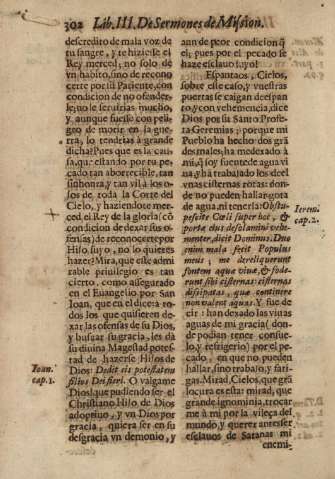 302 Lib. III. De Sermones de Mission.
descredito de mala voz de
tu sangre, y te hiziesse el
Rey merced; no solo de
vn habito, sino de recono
certe por su Pariente, con
condicion de no ofender-
le; no le seruirias mucho,
y, aunque fuesse con peli-
gro de morir en la gue-
rra, lo tendrias à grande
dicha? Pues que es la cau-
sa, que estando por tu pe-
cado tan aborrecible, tan
sin honra, y tan vil à los o-
jos de toda la Corte del
Cielo, y haziendote mer-
ced el Rey de la gloria (cõ
condicion de dexar sus o-
fensas) de reconocerte por
Hijo suyo, no lo quieres
hazer? Mira, que este admi
rable priuilegio es tan
cierto, como assegurado
en el Euangelio por San
Iuan, que en el dize: à to-
dos los que quisieren de-
xar las ofensas de su Dios,
y buscar su gracia, les dà
su diuina Magestad potes-
tad de hazerse Hijos de
Dios: Dedit eis potestatem
filios Dei fieri. O valgame
Dios! que pudiendo ser el
Christiano Hijo de Dios
adoptiuo, y vn Dios por
gracia, quiera ser en su
desgracia vn demonio, y
Ioan.
cap. 1.
aun de peor condicion q̃
el; pues por el pecado se
haze esclauo suyo!
Espantaos, Cielos,
sobre este caso, y vuestras
puertas se caigan de espan
to, y con vehemencia, dize
Dios por su Santo Profe-
ta Geremias; porque mi
Pueblo ha hecho dos grã
des males; ha moderado à
mi, q̃ soy fuente de agua vi
ua, y ha trabajado los de el
vnas cisternas rotas: don-
de no pueden hallar gota
de agua, ni tenerla: Obstu-
pescite Cœli super hoc, &
portæ eius desolamini vehe-
menter, dicit Dominus. Duo
enim mala fecit Populus
meus, me dereliquerunt
fontem aquæ viuæ, & fode-
runt sibi cisternas: cisternas
dissipatas, quæ continere
non valent aquas. Y fue de
cir: han dexado las viuas
aguas de mi gracia (don-
de podian tener consue-
lo, y refrigerio) por el pe-
cado, en que no pueden
hallar, sino trabajo, y fati-
gas. Mirad, Cielos, que grã
locura es esta: mirad, que
grande ignominia, trocar
me à mi por la vileça del
mundo, y querer antes ser
esclauos de Satanas mi
enemi-
Ierem.
cap. 2.